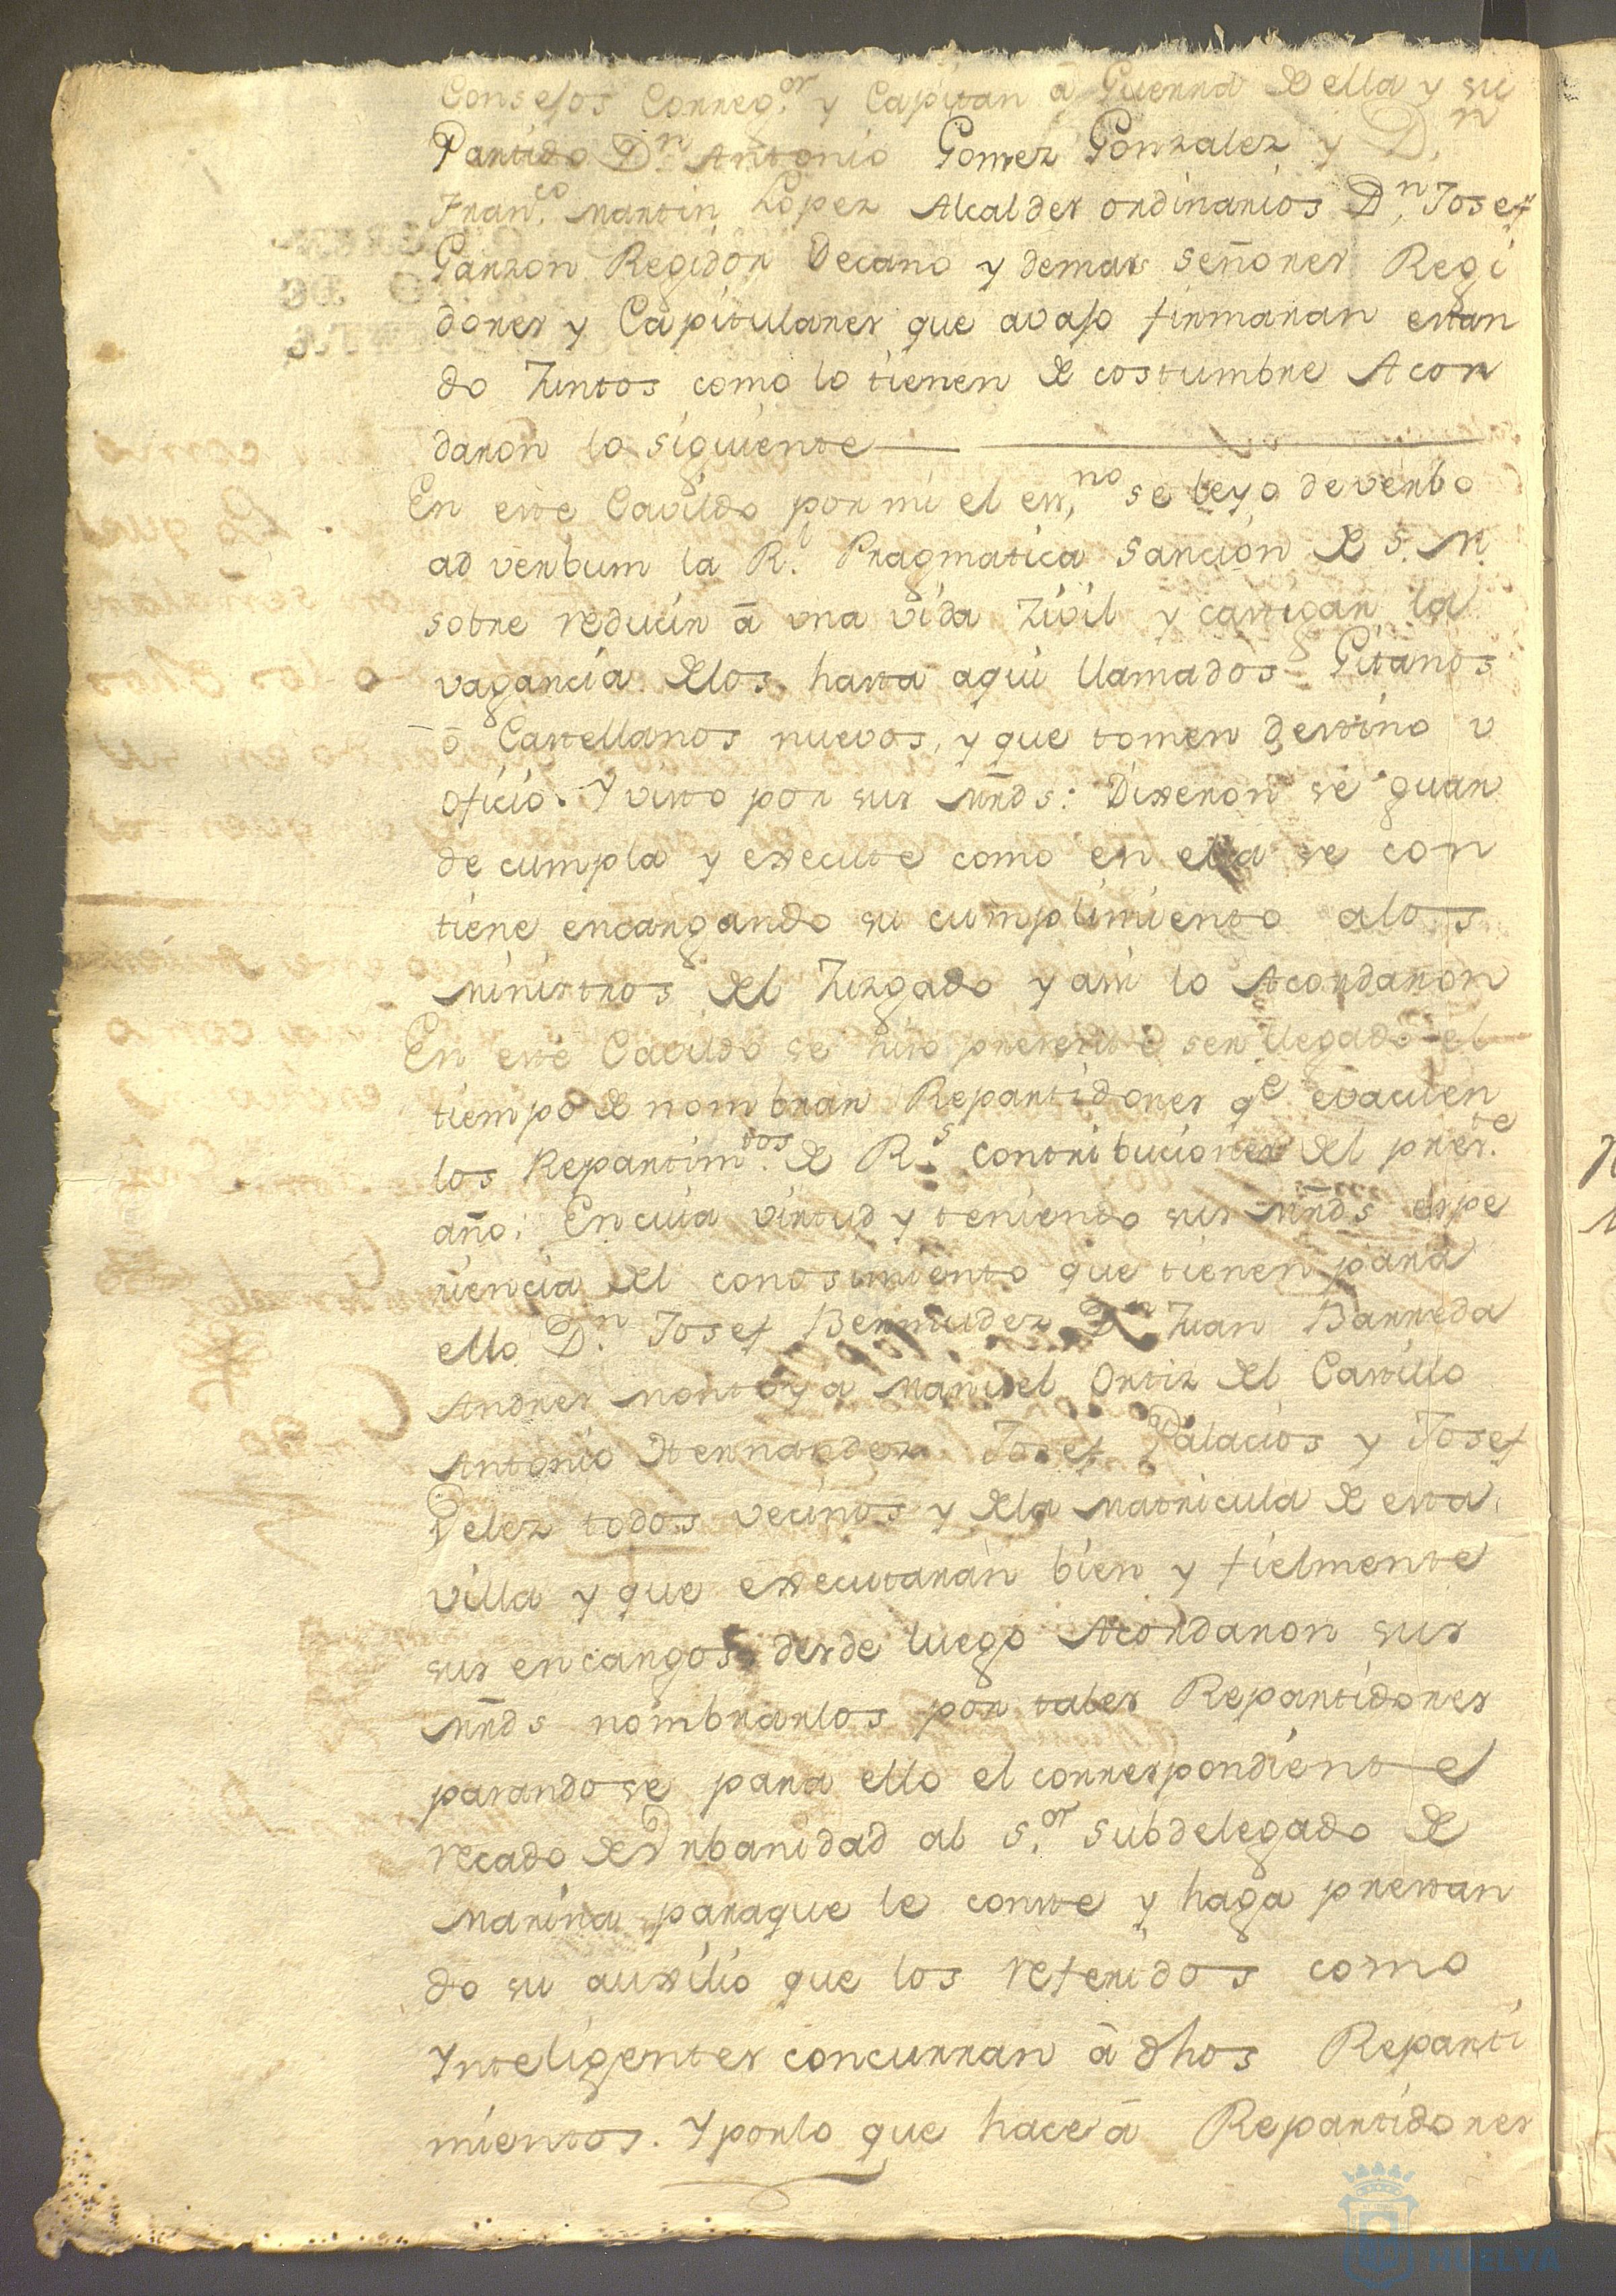 Consejos Correg.or y Capitan â Guerra de ella y su
Partido D.n Antonio Gomez Gonzalez y D.n
Fran.co Martin Lopez Alcaldes ordinarios D.n Josef
Garzon Regidor Decano y demas señores Regi
dores y Capitulares que avajo firmaran estan
do Juntos como lo tienen de costumbre Acor
daron lo siguiente
En este Cavildo por mi el ess.no se leyo de verbo
ad verbum la R.l Pragmatica Sancion de S. M.
sobre reducir â una vida Zivil y castigar la
vagancia delos hasta aqui llamados Gitanos
ô Castellanos nuevos, y que tomen destino v
oficio. Y visto por sus mrds: Dixeron se guar
de cumpla y execute como en ella se con
tiene encargando su cumplimiento alos
Ministros del Juzgado y asi lo Acordaron
En este Cavildo se hiso presente ser llegado el
tiempo de nombrar Repartidores q.e evacuen
los Repartim.tos de R.s contribuciones del pres.te
año: En cuia virtud y teniendo sus mrds espe
riencia del conosimiento que tienen para
ello D.n Josef Bermudez D.n Juan Barreda
Andres Montoya Manuel Ortiz del Castillo
Antonio Hernandez Josef Palacios y Josef
Velez todos vecinos y dela Matricula de esta
villa y que executarán bien y fielmente
sus encargos desde luego Acordaron sus
mrds nombrarlos por tales Repartidores
pasandose para ello el correspondiente
recado de Vrbanidad al S.or Subdelegado de
Marina paraque le conste y haga prestan
do su auxilio que los referidos como
Ynteligentes concurran â dhos Reparti
mientos. Y porlo que hace â Repartidores
HUELVA